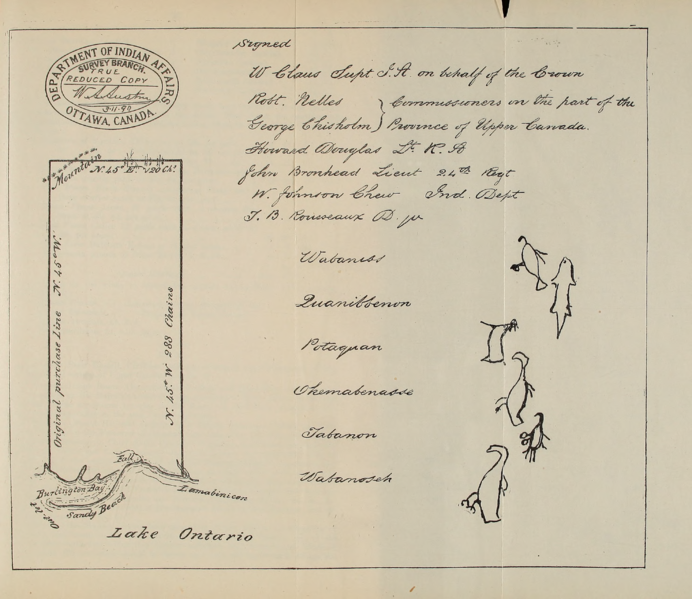 DEPARTMENT OF INDIAN AFFAIRS
SURVEY BRANCH.
TRUE
REDUCED COPY
W.A. Austin
OTTAWA, CANADA.
Signed
W Claus Supt I.A. on behalf of the Crown
Robt. Nelles
George Chisholm
Commissioners on the part of the
Province of Upper Canada.
Howard Douglas Lt. R. A
John Bromhead Lieut 24th Regt
W. Johnson Chew Ind. Dept
J. B. Rousseaux
Mountain
N. 45° E.
Original purchase Line N. 45° W.
N. 45° W 283 Chains
Wabanoss
Quanibbenon
Potaquan
Okemabenasse
Tabanon
Wabanosch
Fall
Burlington Bay
Sandy Beach
Lamabinicon
Lake Ontario